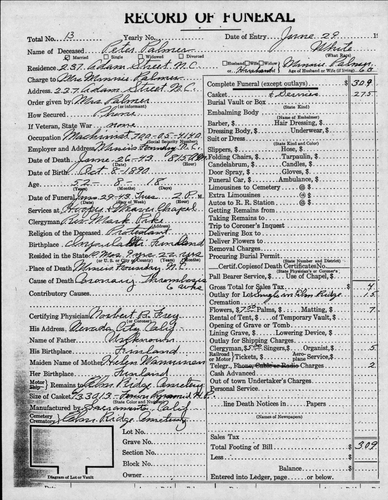 RECORD OF FUNERAL
Total No. 13 Yearly No. Date of Entry June 29
Name of Deceased Peter Palmer White
Married Single Widowed Divorced
Residence 237 Adam Street N.C.
Charge to Mrs Minnie Palmer
Address 227 Adam Street N.C.
Order given by Mrs Palmer
How Secured Phone
If Veteran, State War none
Occupation Machinist 700-05-4140
Employer and Address
Date of Death June 26-43
Date of Birth Oct 8-1890
Age 52 8 18
Services at Hooper & Weaver Chapel
Clergyman Rev.
Religion of the Deceased Protestant
Birthplace Finland
Resided in the State
Place of Death
Cause of Death Coronary Thrombosis
Contributory Causes
Certifying Physician Norbert B. Frey
His Address Nevada City Calif
Name of Father Unknown
His Birthplace Finland
Maiden Name of Mother
Her Birthplace Finland
Remains to Elm Ridge Cemetery
Size of Casket
Manufactured by Sacramento, Calif
Cemetery Crematory Elm Ridge Cemetery
Diagram of Lot or Vault
Lot No.
Grave No.
Section No.
Block No.
Owner
Husband Wife Widow of Minnie Palmer
Age of Husband or Wife (if living) 66
Complete Funeral (except outlays) $ 309
Casket & Services 275
Burial Vault or Box
(State Kind)
Embalming Body
Barber, $ Hair Dressing, $
Dressing Body, $ Underwear, $
Suit or Dress
(State Kind and Color)
Slippers, $ Hose, $
Folding Chairs, $ Tarpaulin, $
Candelabrum, $ Candles, $
Door Spray, $ Gloves, $
Funeral Car, $ Ambulance, $
Limousines to Cemetery @ $
Extra Limousines @ $
Autos to R. R. Station @ $
Getting Remains from
Taking Remains to
Trip to Coroner's Inquest
Delivering Box to
Deliver Flowers to
Removal Charges
Procuring Burial Permit
(State Number and District)
Certif. Copies of Death Certificate No.
Pall Bearer Service, $ Use of Chapel, $
Gross Total for Sales Tax $ 4
Outlay for Lot 15
Flowers, $ Palms, $ Matting, $ 7
Rental of Tent, $ of Temporary Vault, $
Opening of Grave or Tomb
Lining Grave, $ Lowering Device, $
Outlay for Shipping Charges
Clergyman, $ Singers, $ Organist, $ 5
Railroad or Motor Tickets, $ Aeroplane Service, $
Telegr., Phone, Cable or Radio Charges 2
Cash Advanced
Out of town Undertaker's Charges
Personal Service
line Death Notices in Papers
(Names of Newspapers)
Sales Tax
Total Footing of Bill $ 309
Less
Balance
Entered into Ledger, page or below.